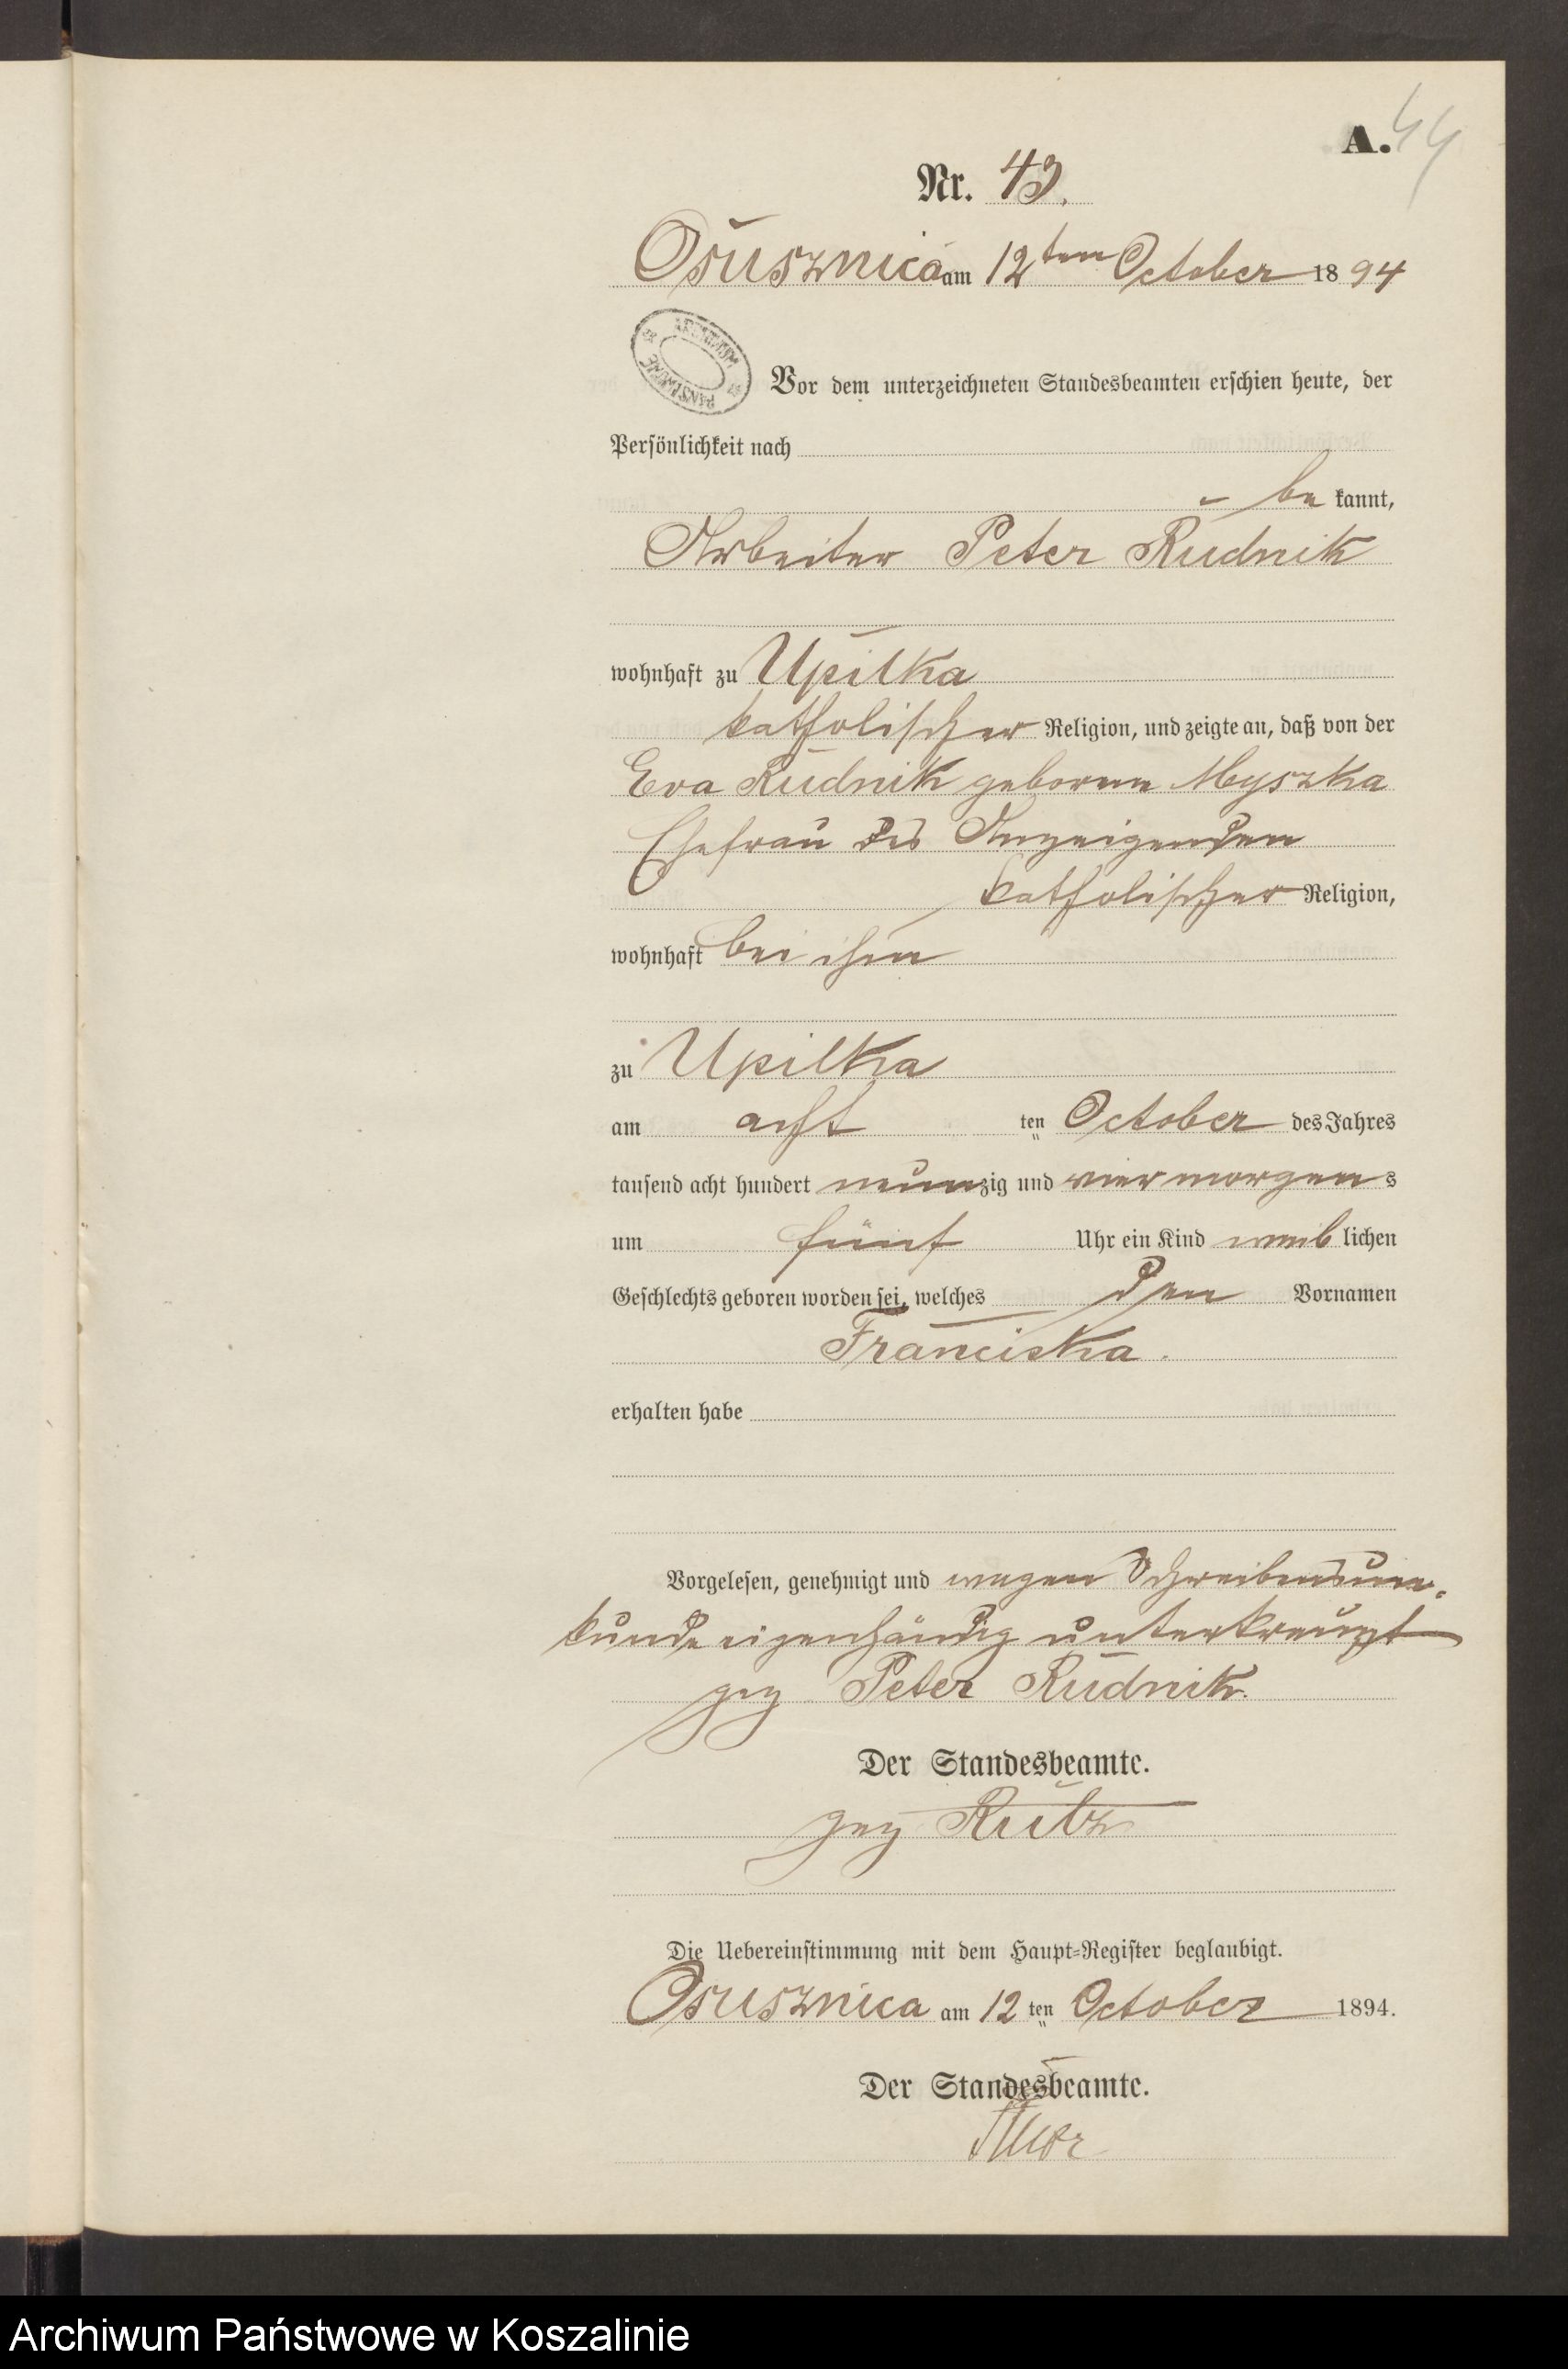 A. 44
Nr. 43.
Osusznica am 12ten October 1894
ARCHIWUM PAŃSTWOWE
Vor dem unterzeichneten Standesbeamten erschien heute, der
Persönlichkeit nach
be kannt,
Arbeiter Peter Rudnik
wohnhaft zu Upilka
katholischer Religion, und zeigte an, daß von der
Eva Rudnik geborene Myszka
Ehefrau des Anzeigenden
katholischer Religion,
wohnhaft bei ihm
zu Upilka
am acht ten October des Jahres
tausend acht hundert neunzig und vier morgens
um fünf Uhr ein Kind weib lichen
Geschlechts geboren worden sei, welches den Vornamen
Franciska.
erhalten habe
Vorgelesen, genehmigt und wegen Schreibensun-
kunde eigenhändig unterkreuzt
gez Peter Rudnik.
Der Standesbeamte.
gez
Die Uebereinstimmung mit dem Haupt-Register beglaubigt.
Osusznica am 12 ten October 1894.
Der Standesbeamte.
Archiwum Państwowe w Koszalinie